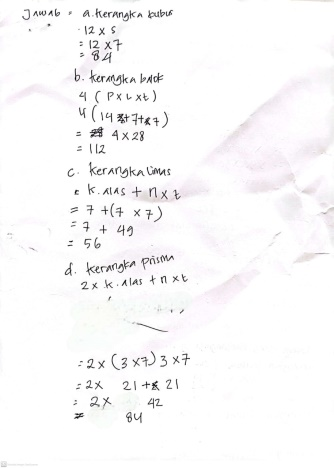 Jawab = a. kerangka kubus
12 x s
= 12 x 7
= 84
b. kerangka balok
4 ( P x L x t )
4 ( 14 + 7 + 7 )
= 4 x 28
= 112
c. kerangka limas
= k. alas + n x t
= 7 + (7 x 7)
= 7 + 49
= 56
d. kerangka prisma
2 x k. alas + n x t
= 2 x (3 x 7) 3 x 7
= 2 x 21 + 21
= 2 x 42
= 84